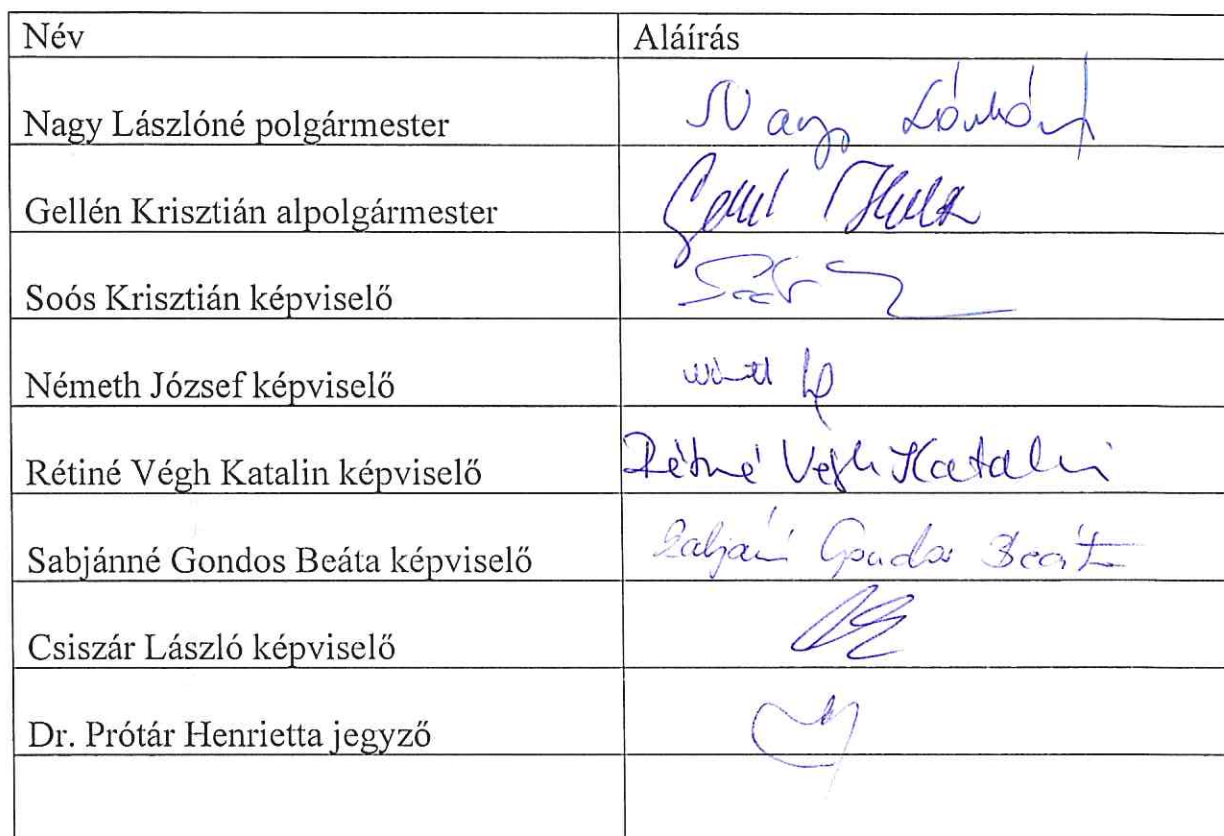 Név Aláírás
Nagy Lászlóné polgármester Nagy Lászlóné
Gellén Krisztián alpolgármester
Soós Krisztián képviselő
Németh József képviselő
Rétiné Végh Katalin képviselő Rétiné Végh Katalin
Sabjánné Gondos Beáta képviselő Sabjánné Gondos Beáta
Csiszár László képviselő
Dr. Prótár Henrietta jegyző